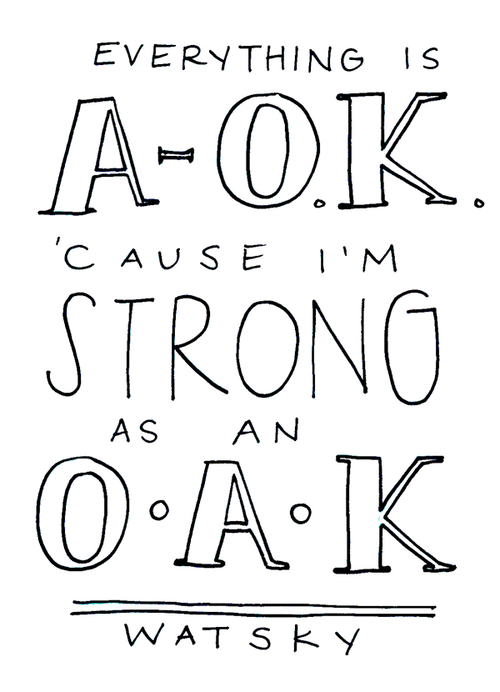 EVERYTHING IS
A-O.K.
'CAUSE I'M
STRONG
AS AN
O•A•K
WATSKY